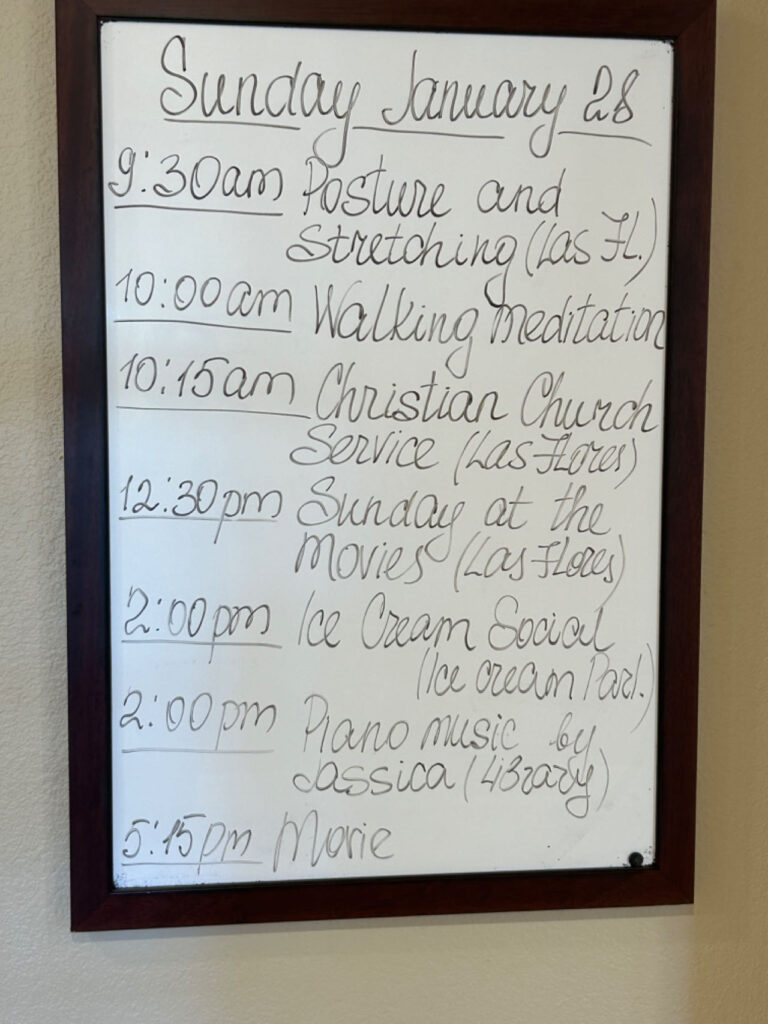 Sunday January 28
9:30am Posture and
Stretching (Las Fl.)
10:00am Walking meditation
10:15am Christian Church
Service (Las Flores)
12:30pm Sunday at the
Movies (Las Flores)
2:00pm Ice Cream Social
(Ice cream Parl.)
2:00pm Piano music by
Jassica (Library)
5:15pm Movie